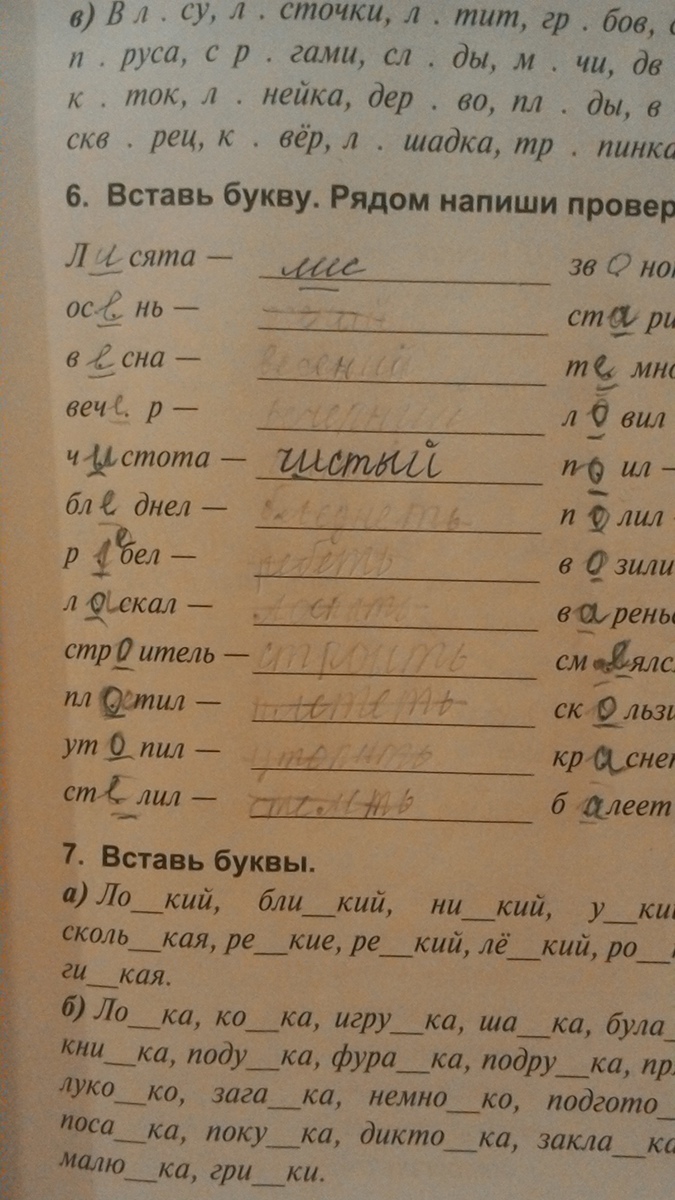 в) В л . су, л . сточки, л . тит, гр . бов,
п . руса, с р . гами, сл . ды, м . чи, дв
к . ток, л . нейка, дер . во, пл . ды, в
скв . рец, к . вёр, л . шадка, тр . пинка
6. Вставь букву. Рядом напиши провер
Л и сята — лис зв О нок
ос е нь — ст а ри
в е сна — весений те мно
веч е. р — вечерний л о вил
ч и стота — чистый п о ил —
бл е днел — бледнеть п о лил
р е бел — ребеть в о зили
л а скал — ласкать в а рень
стр о итель — строить см е ялс
пл о тил — плететь ск о льзи
ут о пил — утопить кр а снет
ст е лил — стелеть б а леет
7. Вставь буквы.
а) Ло__кий, бли__кий, ни__кий, у__кий
сколь__кая, ре__кие, ре__кий, лё__кий, ро__
ги__кая.
б) Ло__ка, ко__ка, игру__ка, ша__ка, була_
кни__ка, поду__ка, фура__ка, подру__ка, пр
луко__ко, зага__ка, немно__ко, подгото_
поса__ка, поку__ка, дикто__ка, закла__ка
малю__ка, гри__ки.